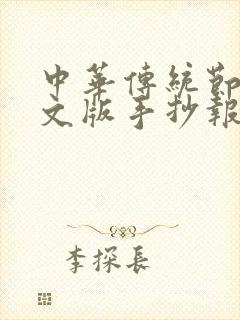 中華傳統節
文版手抄報
李探長